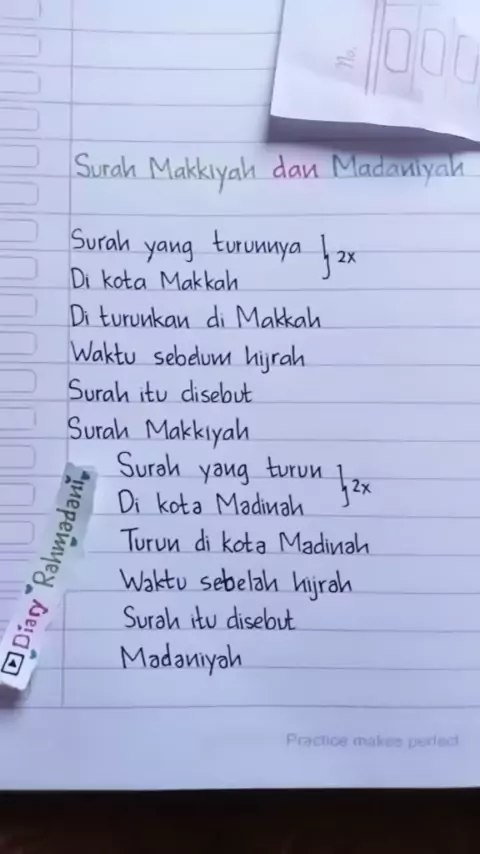 No.
Surah Makkiyah dan Madaniyah
Surah yang turunnya } 2x
Di kota Makkah
Di turunkan di Makkah
Waktu sebelum hijrah
Surah itu disebut
Surah Makkiyah
Surah yang turun } 2x
Di kota Madinah
Turun di kota Madinah
Waktu sebelah hijrah
Surah itu disebut
Madaniyah
Diary Rahmadani
Practice makes perfect